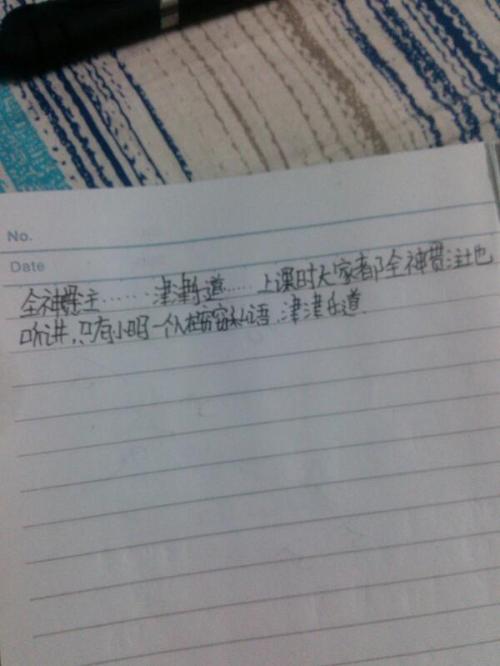 No.
Date
全神贯主……津津乐道……上课时大家都全神贯注地
听讲,只有小明一个人在窃窃私语,津津乐道.